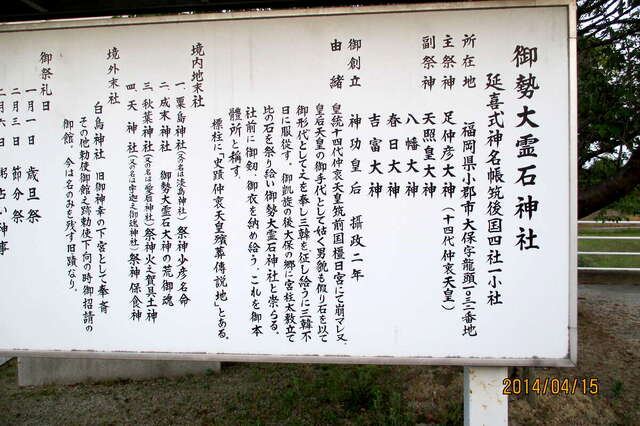 御勢大霊石神社
延喜式神名帳筑後国四社一小社
所在地 福岡県小郡市大保字龍頭一〇三二番地
主祭神 足仲彦大神(十四代仲哀天皇)
副祭神 天照皇大神
八幡大神
春日大神
吉富大神
御創立 神功皇后 摂政二年
由緒 皇統十四代仲哀天皇筑前国橿日宮にて崩マレ又、
皇后天皇の御手代として姑く男貌も假り石を以て
御形代として之を奉し三韓を征し給うに三韓不
日に服従す。御凱旋の後大保の郷に宮柱太敷立て
此の石を祭り給い御勢大霊石神社と崇らる。
社前に御剱、御衣を納め給う、これを御本
體所と稱す。
標柱に「史蹟仲哀天皇殯葬傳説地」とある。
境内地末社
一、粟島神社(又の名は淡島神社)祭神少彦名命
二、成末神社 御勢大霊石大神の荒御魂
三、秋葉神社(又の名は愛宕神社)祭神火之賀具土神
四、天神社(又の名は宇迦之御魂神社)祭神保食神
境外末社
白鳥神社 旧御神幸の下宮として奉斎
その他勅使御館之跡勅使下向の時御招請の
御館。今は名のみを残す旧蹟なり。
御祭礼日
一月一日 歳旦祭
二月三日 節分祭
二月六日 粥占い神事
2014/04/15